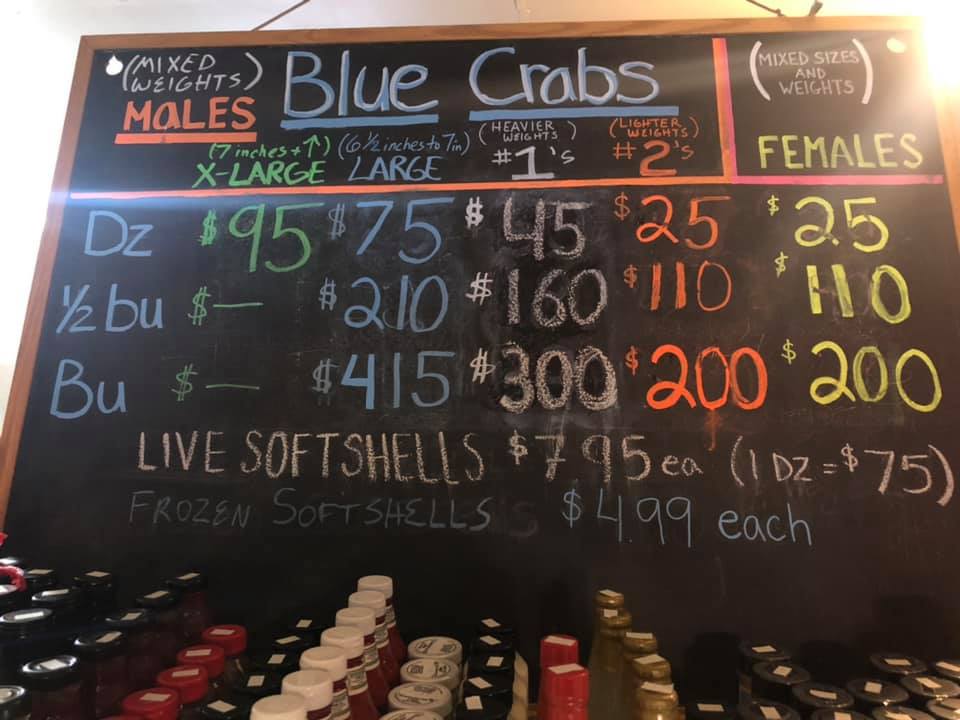 (MIXED WEIGHTS) Blue Crabs (MIXED SIZES AND WEIGHTS)
MALES
(7 inches + ↑) (6 ½ inches to 7in) (HEAVIER WEIGHTS) (LIGHTER WEIGHTS)
X-LARGE LARGE #1's #2's FEMALES
Dz $95 $75 $45 $25 $25
½ bu $— $210 $160 $110 $110
Bu $— $415 $300 $200 $200
LIVE SOFTSHELLS $7.95 ea (1 DZ = $75)
FROZEN SOFTSHELLS $4.99 each